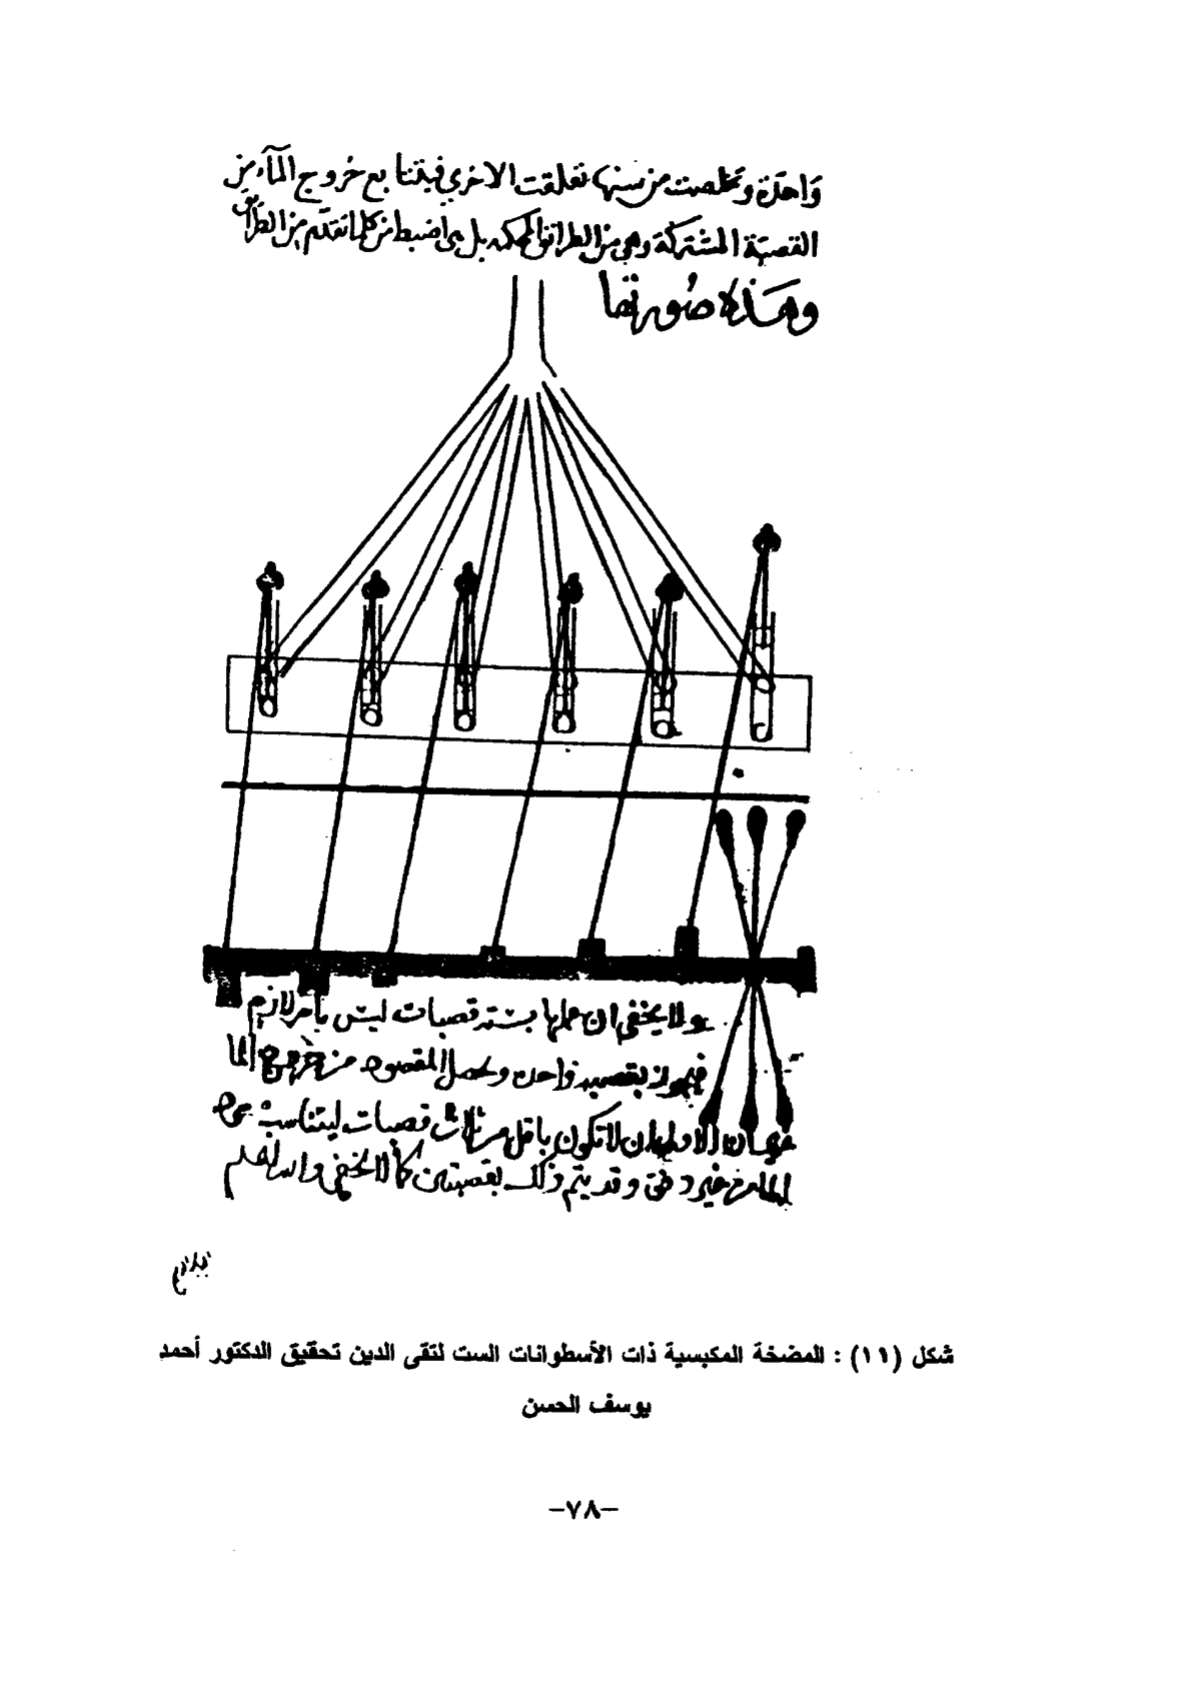 واحدة وتخلصت من سنها تعلقت الاخرى فيتتابع خروج المآء من
القصبة المشتركة وهي من الطرائق المحكمه بل هي اضبط من كلما تقدم من الطرائق
وهذه صورتها
ولا يخفى ان عملها بسته قصبات ليس بامر لازم
فيجوز بقصبه واحده ويحصل المقصود من خروج الما
الاولى ان لا تكون باقل من ثلاث قصبات ليتناسب
الما من غير دفق وقد يتم ذلك بقصبتين كما لا يخفى والله اعلم
شكل (١١) : المضخة المكبسية ذات الأسطوانات الست لتقى الدين تحقيق الدكتور أحمد
يوسف الحسن
-٧٨-